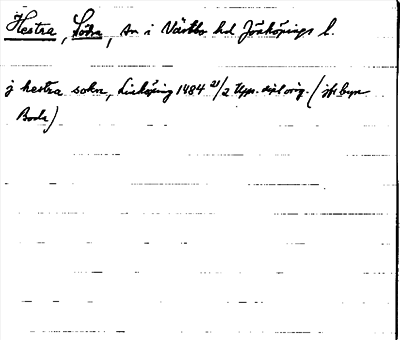 Hestra, Södra, sn i Västbo hd Jönköpings l.
j hestra sokn, Linköping 1484 21/2 Upps. dipl. orig. (jfr byn
Boda)